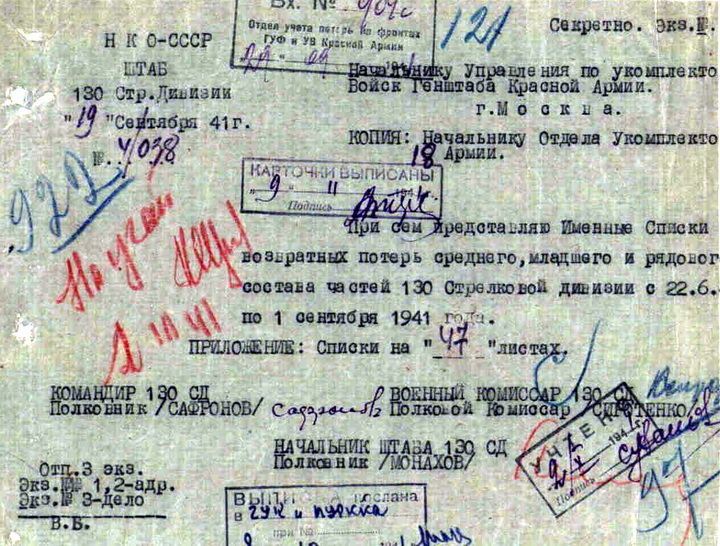 Вх. №
Отдел учета потерь на фронтах
ГУФ и УВ Красной Армии
121
Секретно. Экз.№
Н К О-СССР
ШТАБ
130 Стр.Дивизии
"19"Сентября 41г.
№ 4/038
922
Начальнику Управления по укомплекто
Войск Генштаба Красной Армии.
г.Москва.
КОПИЯ: Начальнику Отдела Укомплекто
18 Армии.
КАРТОЧКИ ВЫПИСАНЫ
"9" 11 194
Подпись
На учет
При сем представляю Именные Списки
возвратных потерь среднего,младшего и рядовог
состава частей 130 Стрелковой дивизии с 22.6.
по 1 сентября 1941 года.
ПРИЛОЖЕНИЕ: Списки на "47"листах.
КОМАНДИР 130 СД
Полковник /САФРОНОВ/ Сафронов
ВОЕННЫЙ КОМИССАР 130 СД
Полковой Комиссар /СИРОТЕНКО
НАЧАЛЬНИК ШТАБА 130 СД
Полковник /МОНАХОВ/
УЧТЕНО
194
Подпись
Отп.3 экз.
Экз.№№ 1,2-адр.
Экз.№ 3-дело
В.Б.
ВЫПИСКА послана
в ГУК и ПУРККА
при №